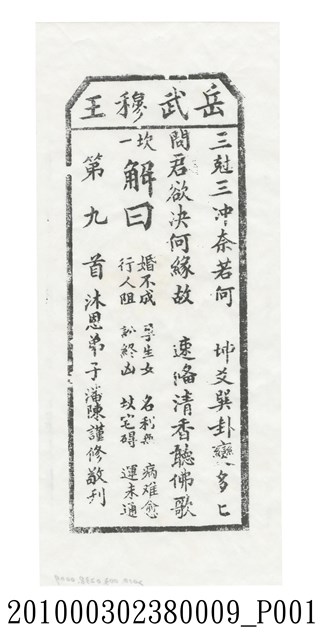 岳武穆王
三尅三冲奈若何　坤爻巽卦變多
問君欲决何緣故　速俻清香聽佛歌
坎一
解曰
婚不成　孕生女　名利無　病难愈
行人阻　訟終凶　坟宅碍　運未通
第九首　沐恩弟子潘陳謹修敬刋
201000302380009_P001